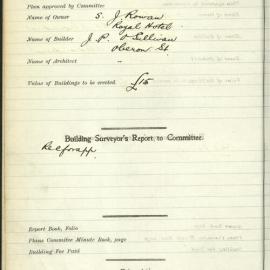 Plan approved by Committee
Name of Owner S. J. Rowan
Royal Hotel
Name of Builder J. P. O'Sullivan
Oberon St
Name of Architect "
Value of Buildings to be erected £15
Building Surveyor's Report to Committee.
Rec for app.
Report Book, Folio
Plans Committee Minute Book, page
Building Fee Paid